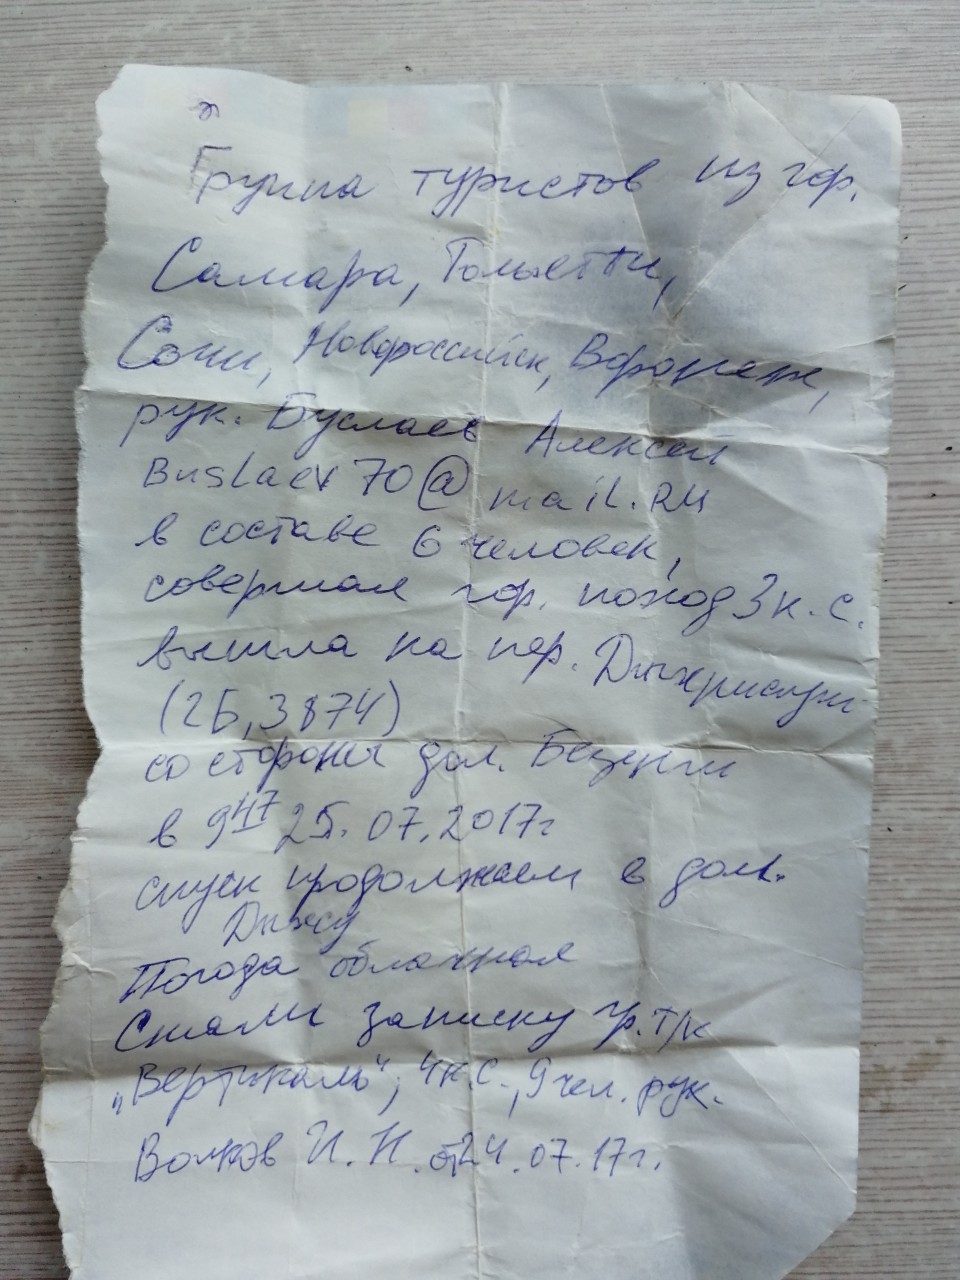 Группа туристов из гор.
Самара, Тольятти,
Сочи, Новороссийск, Воронеж,
рук. Буслаев Алексей
Buslaev70@mail.RU
в составе 6 человек,
совершая гор. поход 3 к.с.
вышла на пер.
(2Б, 3874)
со стороны дол. Безенги
в 9 47 25.07.2017г
спуск продолжаем в дол.
Погода облачная
Сняли записку гр. т/к
„Вертикаль", 4 к.с., 9 чел. рук.
Волков И. Н. от 24.07.17г.